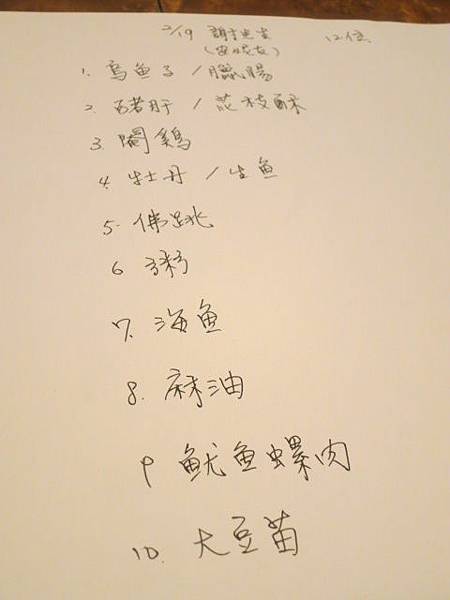 2/19 謝先生 12位
1. 烏魚子 / 臘腸
2. 豬肝 / 花枝酥
3. 閹鷄
4. 牡丹 / 生魚
5. 佛跳
6 粥
7. 海魚
8. 麻油
9 魷魚螺肉
10. 大豆苗